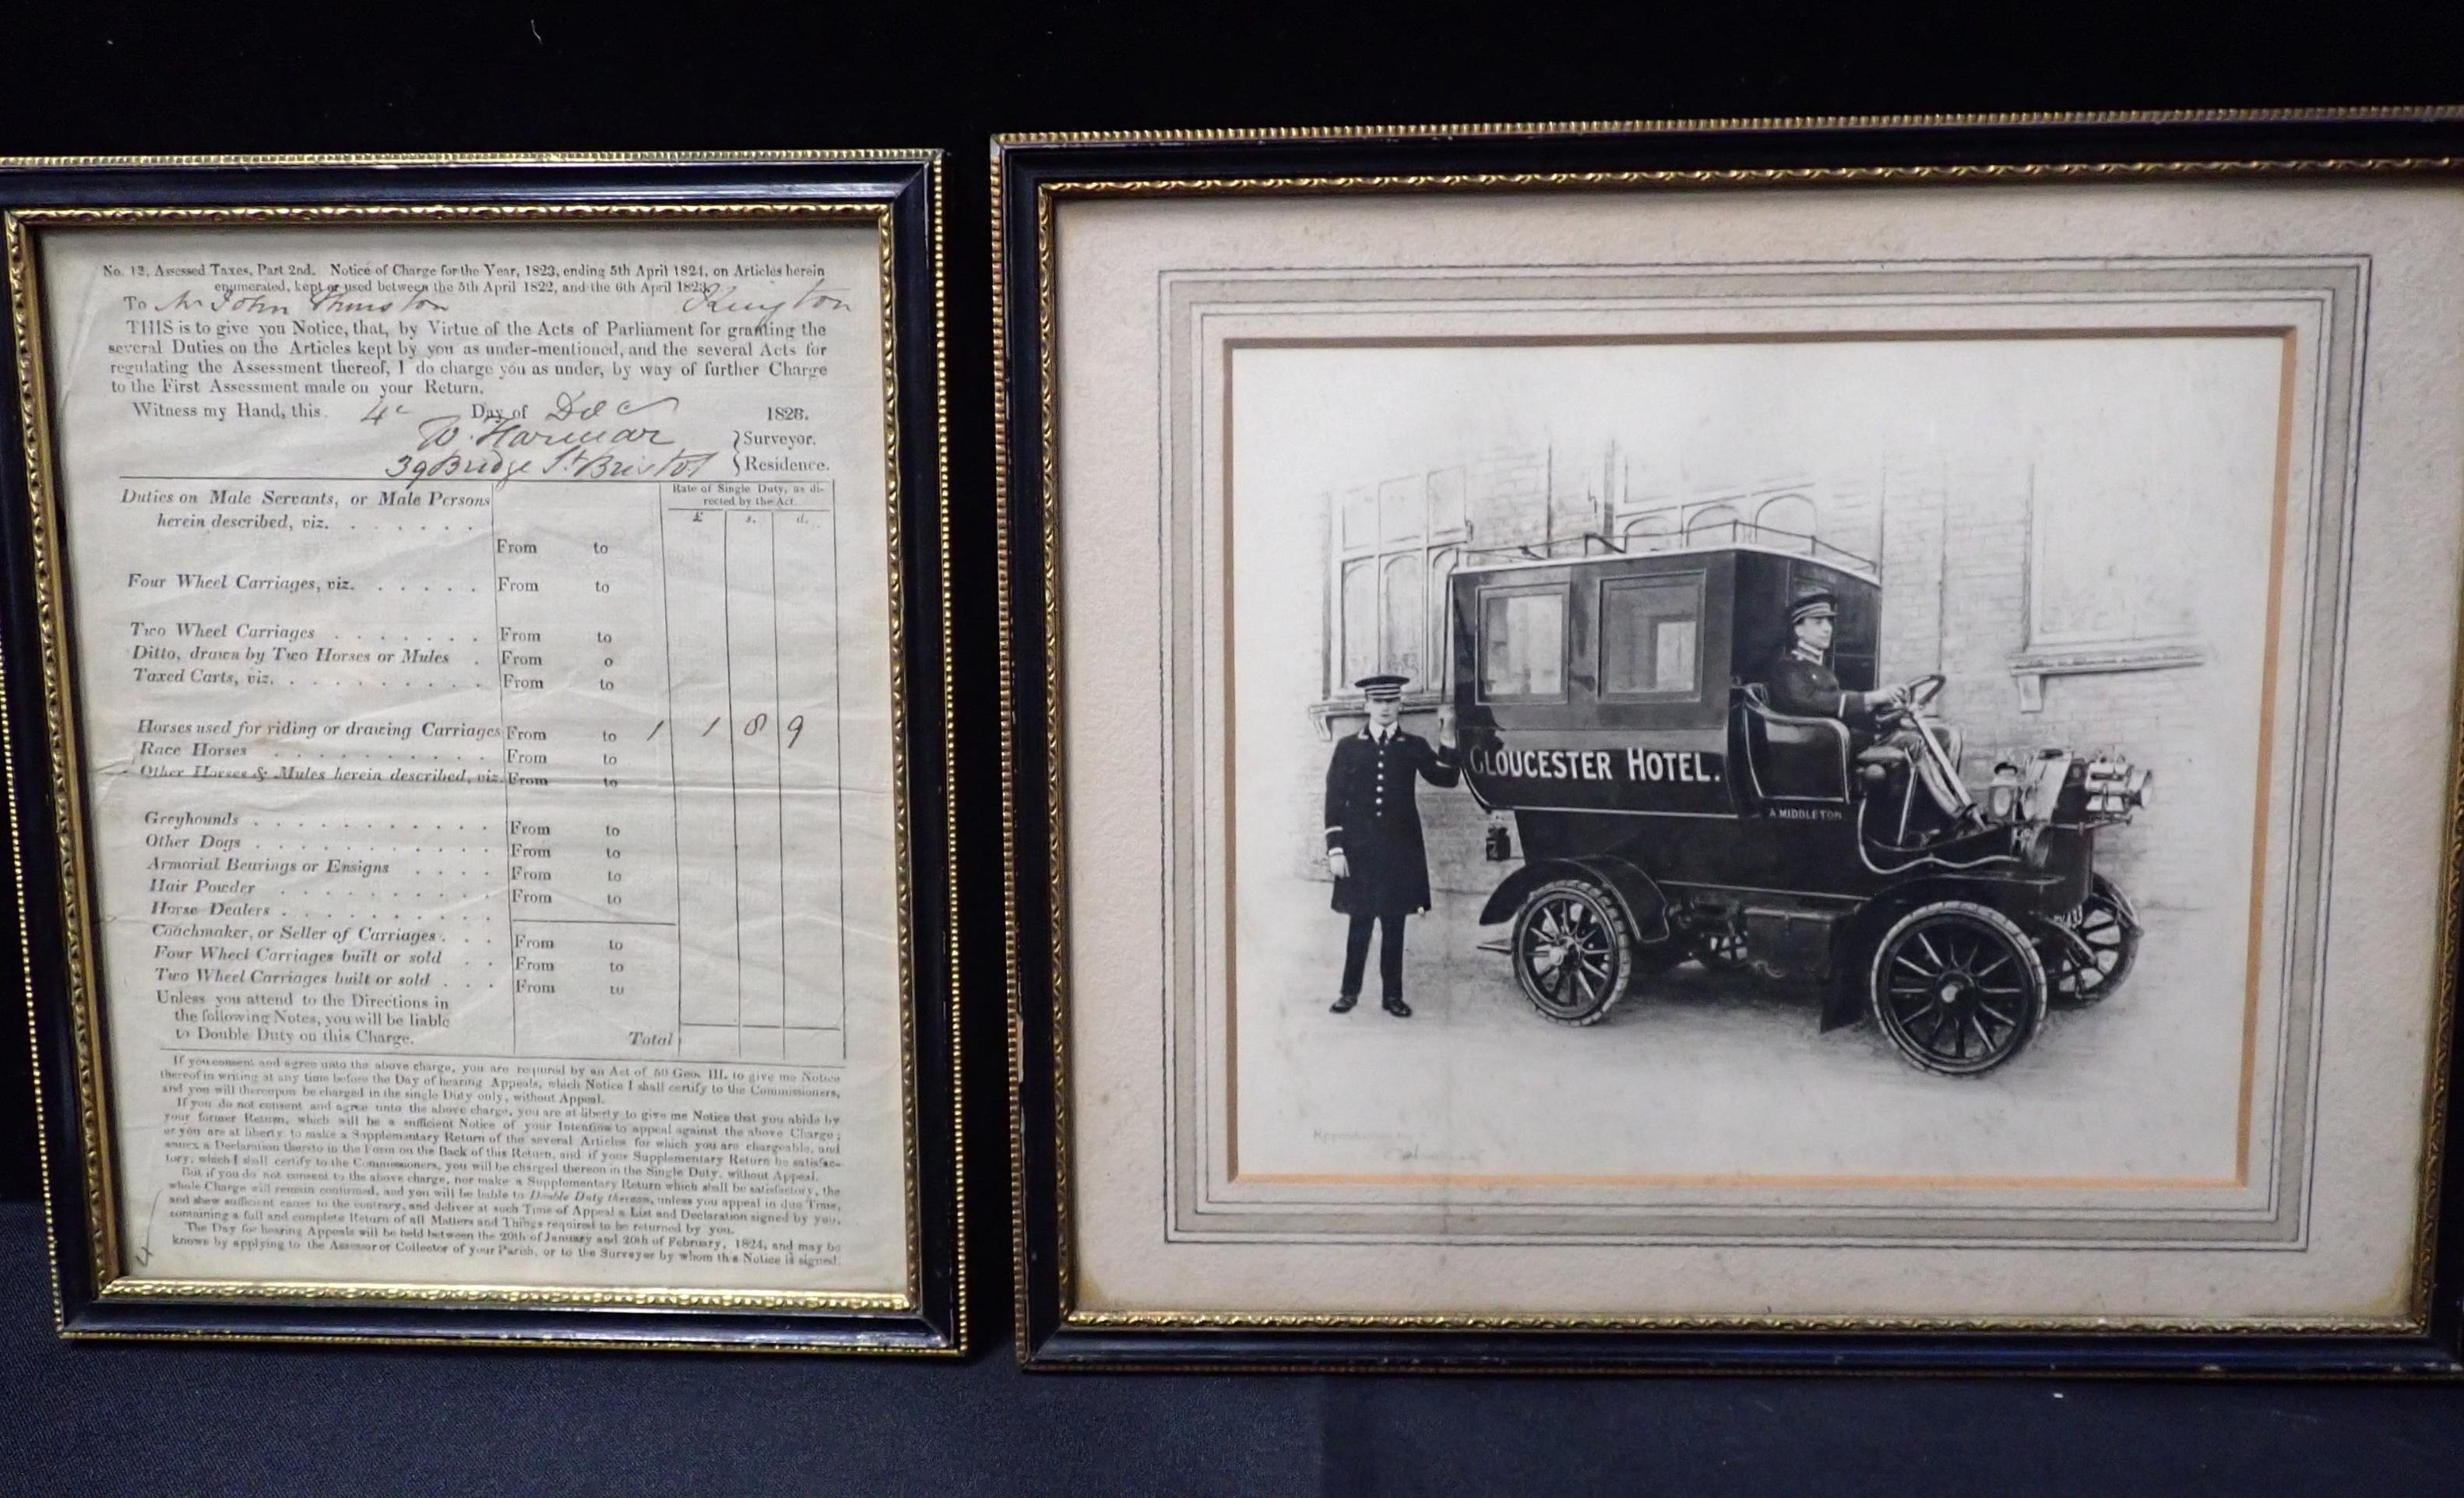 No. 12, Assessed Taxes, Part 2nd. Notice of Charge for the Year, 1823, ending 5th April 1824, on Articles herein
enumerated, kept or used between the 5th April 1822, and the 6th April 1823.
To Mr John Kington
THIS is to give you Notice, that, by Virtue of the Acts of Parliament for granting the
several Duties on the Articles kept by you as under-mentioned, and the several Acts for
regulating the Assessment thereof, I do charge you as under, by way of further Charge
to the First Assessment made on your Return.
Witness my Hand, this 4 Day of Dec 1823.
W. Harmar } Surveyor.
39 Bridge St Bristol } Residence.
Duties on Male Servants, or Male Persons Rate of Single Duty, as di-
rected by the Act.
herein described, viz. . . . . . . £ s. d.
From to
Four Wheel Carriages, viz. . . . . . From to
Two Wheel Carriages . . . . . . . From to
Ditto, drawn by Two Horses or Mules . From o
Taxed Carts, viz. . . . . . . . . . From to
Horses used for riding or drawing Carriages From to 1 1 8 9
Race Horses . . . . . . . . . . From to
Other Horses & Mules herein described, viz. From to
Greyhounds . . . . . . . . . . . From to
Other Dogs . . . . . . . . . . . From to
Armorial Bearings or Ensigns . . . . From to
Hair Powder . . . . . . . . . . From to
Horse Dealers . . . . . . . . . .
Coachmaker, or Seller of Carriages . . . From to
Four Wheel Carriages built or sold . . From to
Two Wheel Carriages built or sold . . . From to
Unless you attend to the Directions in
the following Notes, you will be liable
to Double Duty on this Charge. Total
If you consent and agree unto the above charge, you are required by an Act of 50 Geo. III. to give me Notice
thereof in writing at any time before the Day of hearing Appeals, which Notice I shall certify to the Commissioners,
and you will thereupon be charged in the single Duty only, without Appeal.
If you do not consent and agree unto the above charge, you are at liberty to give me Notice that you abide by
your former Return, which will be a sufficient Notice of your Intention to appeal against the above Charge;
or you are at liberty to make a Supplementary Return of the several Articles for which you are chargeable, and
annex a Declaration thereto in the Form on the Back of this Return, and if your Supplementary Return be satisfac-
tory, which I shall certify to the Commissioners, you will be charged thereon in the Single Duty, without Appeal.
But if you do not consent to the above charge, nor make a Supplementary Return which shall be satisfactory, the
whole Charge will remain confirmed, and you will be liable to Double Duty thereon, unless you appeal in due Time,
and shew sufficient cause to the contrary, and deliver at such Time of Appeal a List and Declaration signed by you,
containing a full and complete Return of all Matters and Things required to be returned by you.
The Day for hearing Appeals will be held between the 20th of January and 20th of February, 1824, and may be
known by applying to the Assessor or Collector of your Parish, or to the Surveyor by whom this Notice is signed.
GLOUCESTER HOTEL.
A MIDDLETON